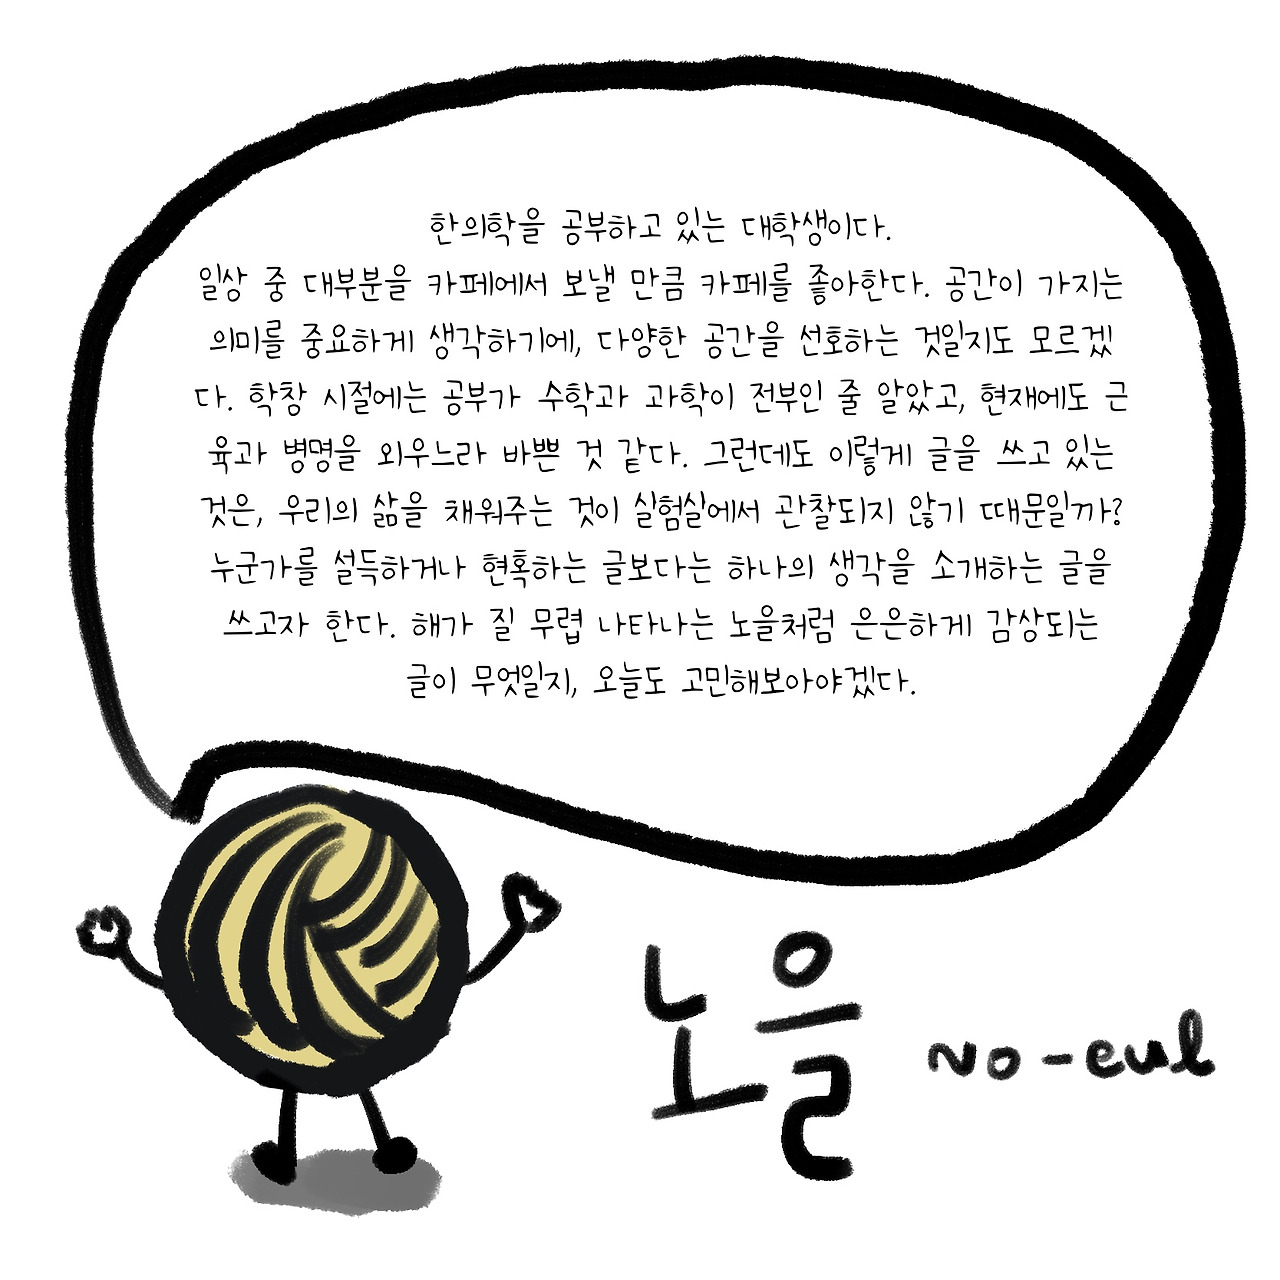 한의학을 공부하고 있는 대학생이다.
일상 중 대부분을 카페에서 보낼 만큼 카페를 좋아한다. 공간이 가지는
의미를 중요하게 생각하기에, 다양한 공간을 선호하는 것일지도 모르겠
다. 학창 시절에는 공부가 수학과 과학이 전부인 줄 알았고, 현재에도 근
육과 병명을 외우느라 바쁜 것 같다. 그런데도 이렇게 글을 쓰고 있는
것은, 우리의 삶을 채워주는 것이 실험실에서 관찰되지 않기 때문일까?
누군가를 설득하거나 현혹하는 글보다는 하나의 생각을 소개하는 글을
쓰고자 한다. 해가 질 무렵 나타나는 노을처럼 은은하게 감상되는
글이 무엇일지, 오늘도 고민해보아야겠다.
노을 no-eul